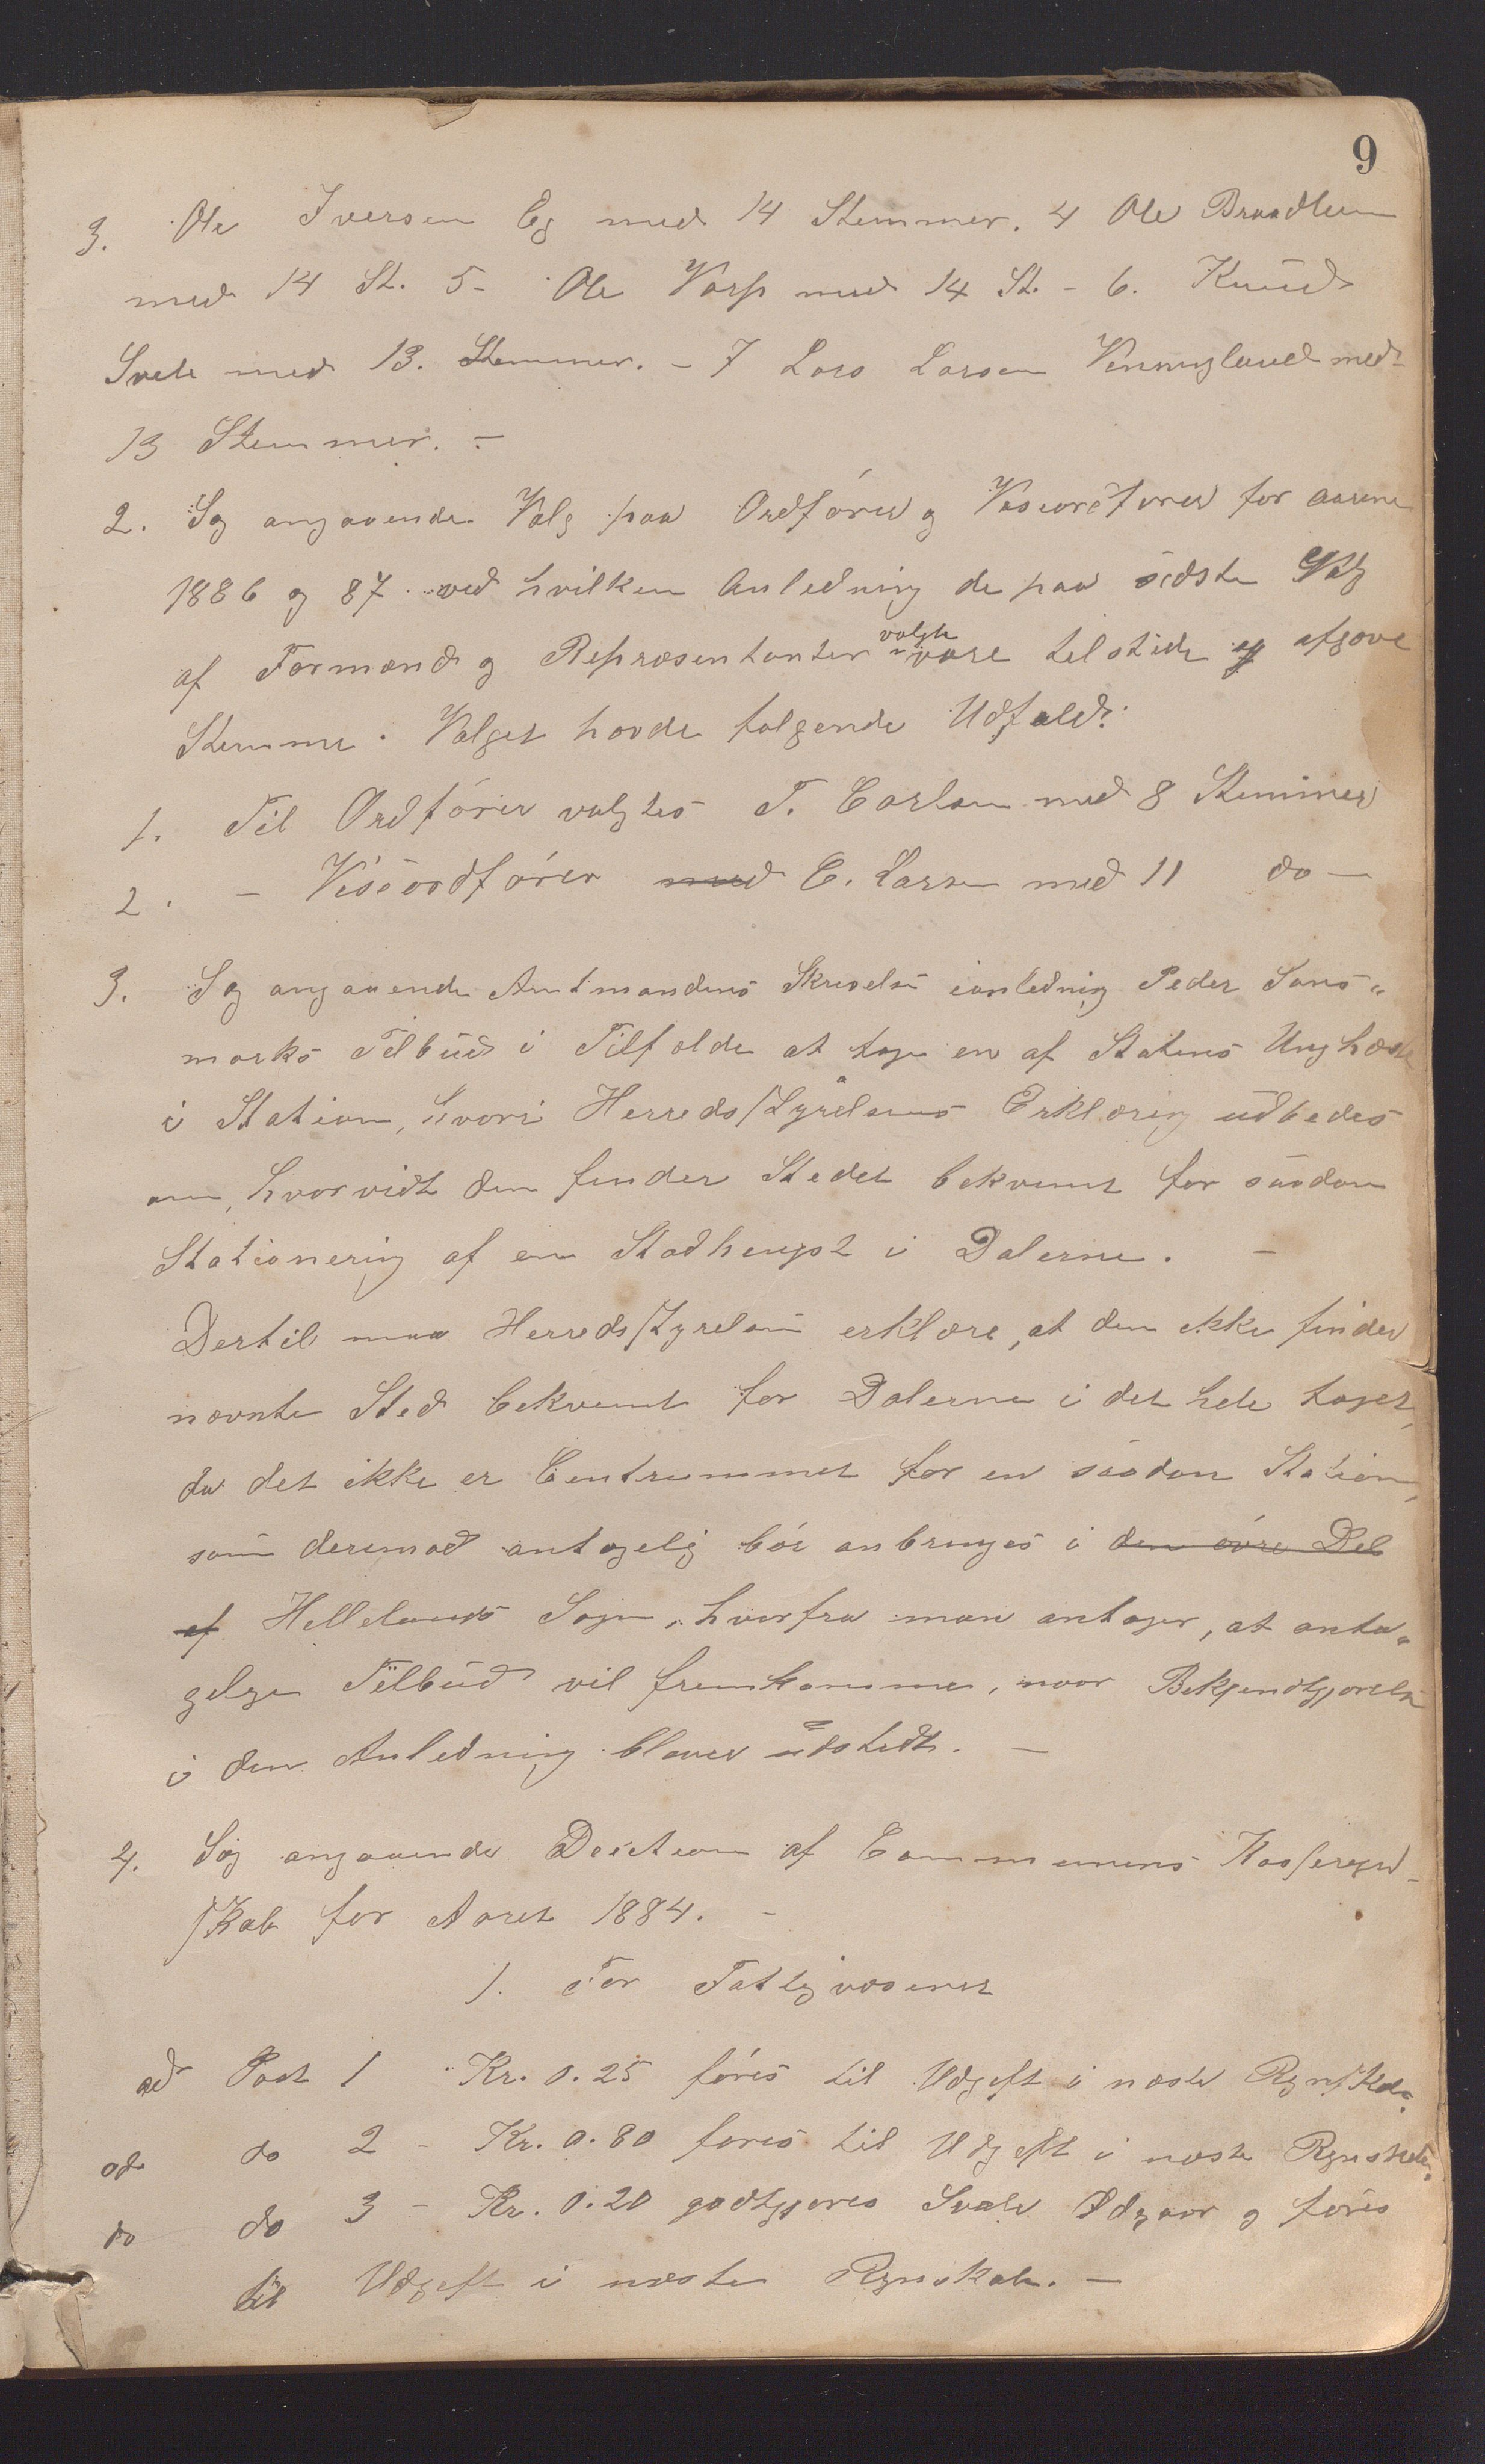 9
3. Ole Iversen Eg med 14 Stemmer. 4 Ole Braadlien
med 14 St. 5- Ole Vasp med 14 St. - 6. Knud
Svele med 13. Stemmer. - 7 Lars Larsen Vennigland med
13 Stemmer. -
2. Sag angaaende Valg paa Ordfører og Viseordfører for aarene
1886 og 87. ved hvilken Anledning de paa sidste Valg
af Formænd og Repræsentanter valgte vare tilstede og afgave
Stemme. Valget havde følgende Udfald:
1. Til Ordfører valgtes T. Carlsen med 8 Stemmer
2. - Viseordfører med C. Larsen med 11 do -
3. Sag angaaende Amtmandens Skrivelse ianledning Peder Sans-
marks Tilbud i Tilfælde at tage en af Statens Unghæste
i Station, hvori Herredsstyrelsens Erklæring udbedes
om, hvorvidt den finder Stedet bekvemt for saadan
Stationering af en Stadhengst i Dalerne. -
Dertil maa Herredsstyrelsen erklære, at den ikke finder
nævnte Sted bekvemt for Dalerne i det hele taget,
da det ikke er Centrummet for en saadan Station,
som derimod antagelig bør anbringes i den øvre Del
af Hellelands Sogn, hvorfra man antager, at anta-
gelige Tilbud vil fremkomme, naar Bekjendtgjørelse
i den Anledning bliver udstedt. -
4. Sag angaaende Decition af Communens Kasseregn-
skab for Aaret 1884. -
1. For Fattigvæsenet
ad Post 1 Kr. 0.25 føres til Udgift i næste Regnskab.
ad do 2 - Kr. 0.80 føres til Udgift i næste Regnskab.
do do 3 - Kr. 0.20 godtgjøres Svale Ødgaar og føres
til Udgift i næste Regnskab. -